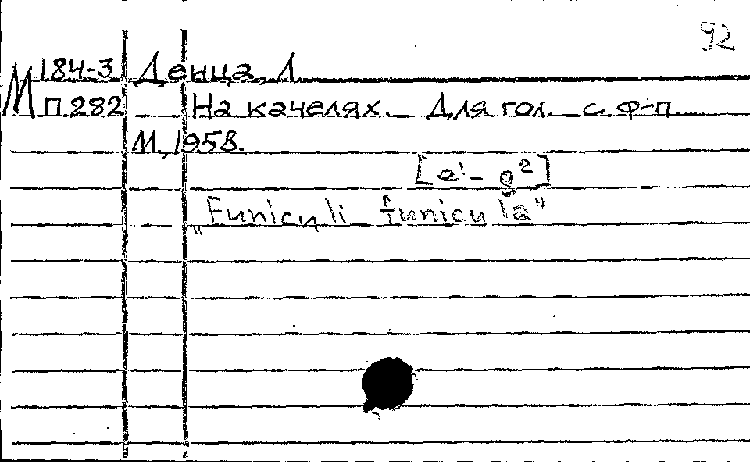 92
М 184-3 Денца, Л.
П.282 На качелях. Для гол. с ф-п.
М., 1958.
[e¹ - g²]
„Funiculi funicula"